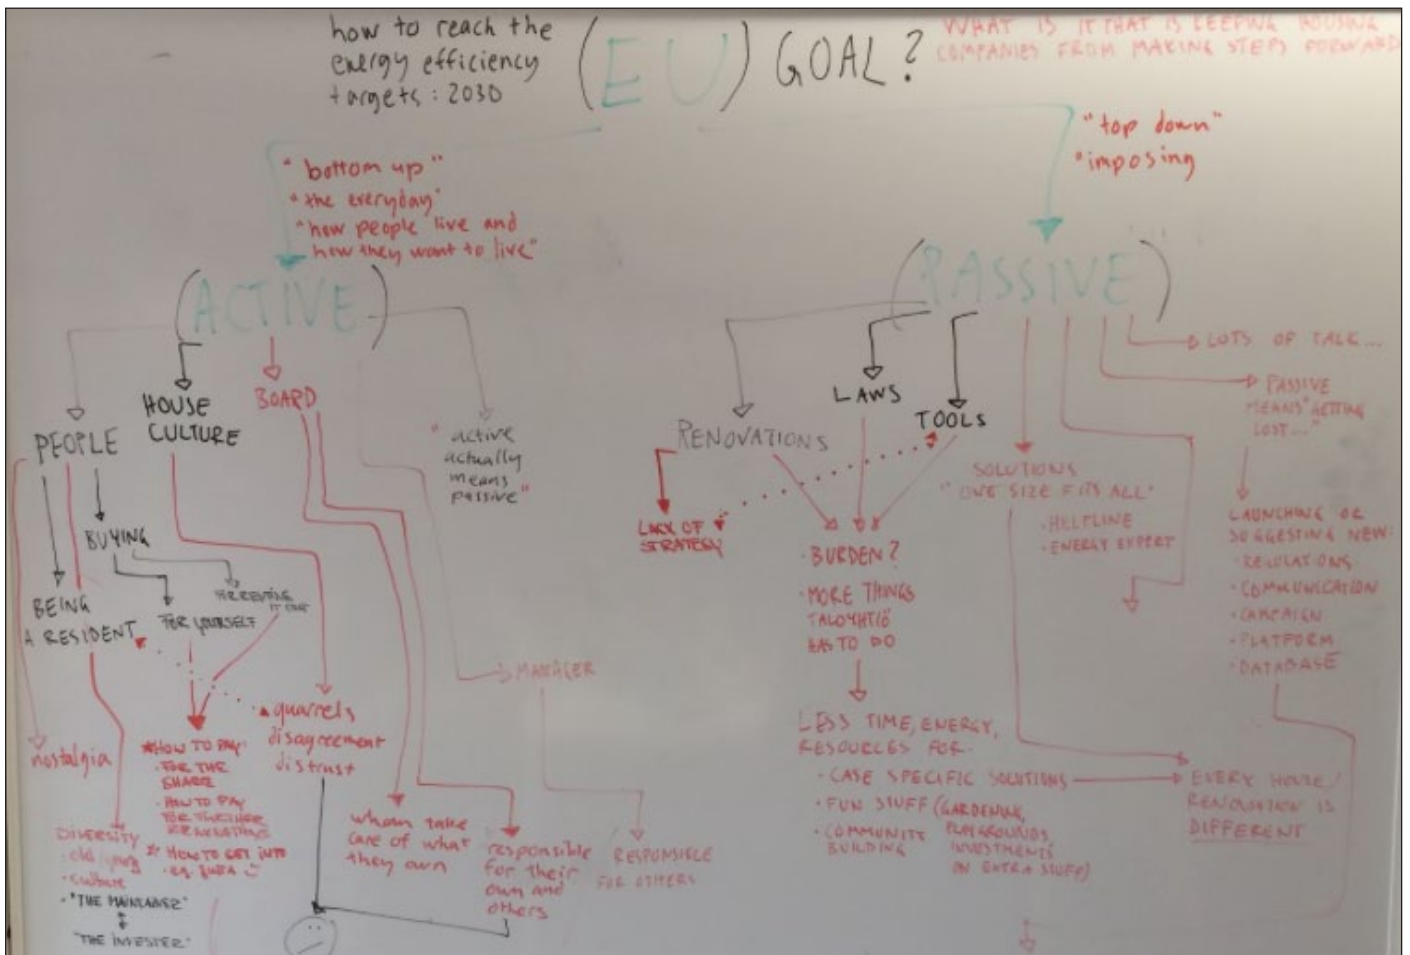 how to reach the
energy efficiency
targets: 2030
(EU) GOAL?
WHAT IS IT THAT IS KEEPING HOUSING
COMPANIES FROM MAKING STEPS FORWARD
"bottom up"
"the everyday"
"how people live and
how they want to live"
"top down"
"imposing
(ACTIVE)
(PASSIVE)
PEOPLE
HOUSE
CULTURE
BOARD
"active
actually
means
passive"
BUYING
BEING
A RESIDENT
FOR YOURSELF
FOR RENTING
IT OUT
MANAGER
nostalgia
*HOW TO PAY
·FOR THE
SHARE
·HOW TO PAY
FOR FURTHER
RENOVATIONS
* HOW TO GET INTO
quarrels
disagreement
distrust
DIVERSITY
·old/young
·culture
·"THE MAINTAINER"
"THE INVESTER"
whom take
care of what
they own
responsible
for their
own and
others
RESPONSIBLE
FOR OTHERS
RENOVATIONS
LAWS
TOOLS
LACK OF
STRATEGY
·BURDEN?
·MORE THINGS
TALOYHTIÖ
HAS TO DO
LESS TIME, ENERGY,
RESOURCES FOR
·CASE SPECIFIC SOLUTIONS
·FUN STUFF (GARDENING,
PLAYGROUNDS
INVESTMENTS
ON EXTRA STUFF)
·COMMUNITY
BUILDING
SOLUTIONS
"ONE SIZE FITS ALL"
·HELPLINE
·ENERGY EXPERT
LOTS OF TALK...
PASSIVE
MEANS "GETTING
LOST..."
LAUNCHING OR
SUGGESTING NEW:
·REGULATIONS
·COMMUNICATION
·CAMPAIGN
·PLATFORM
·DATABASE
EVERY HOUSE/
RENOVATION IS
DIFFERENT